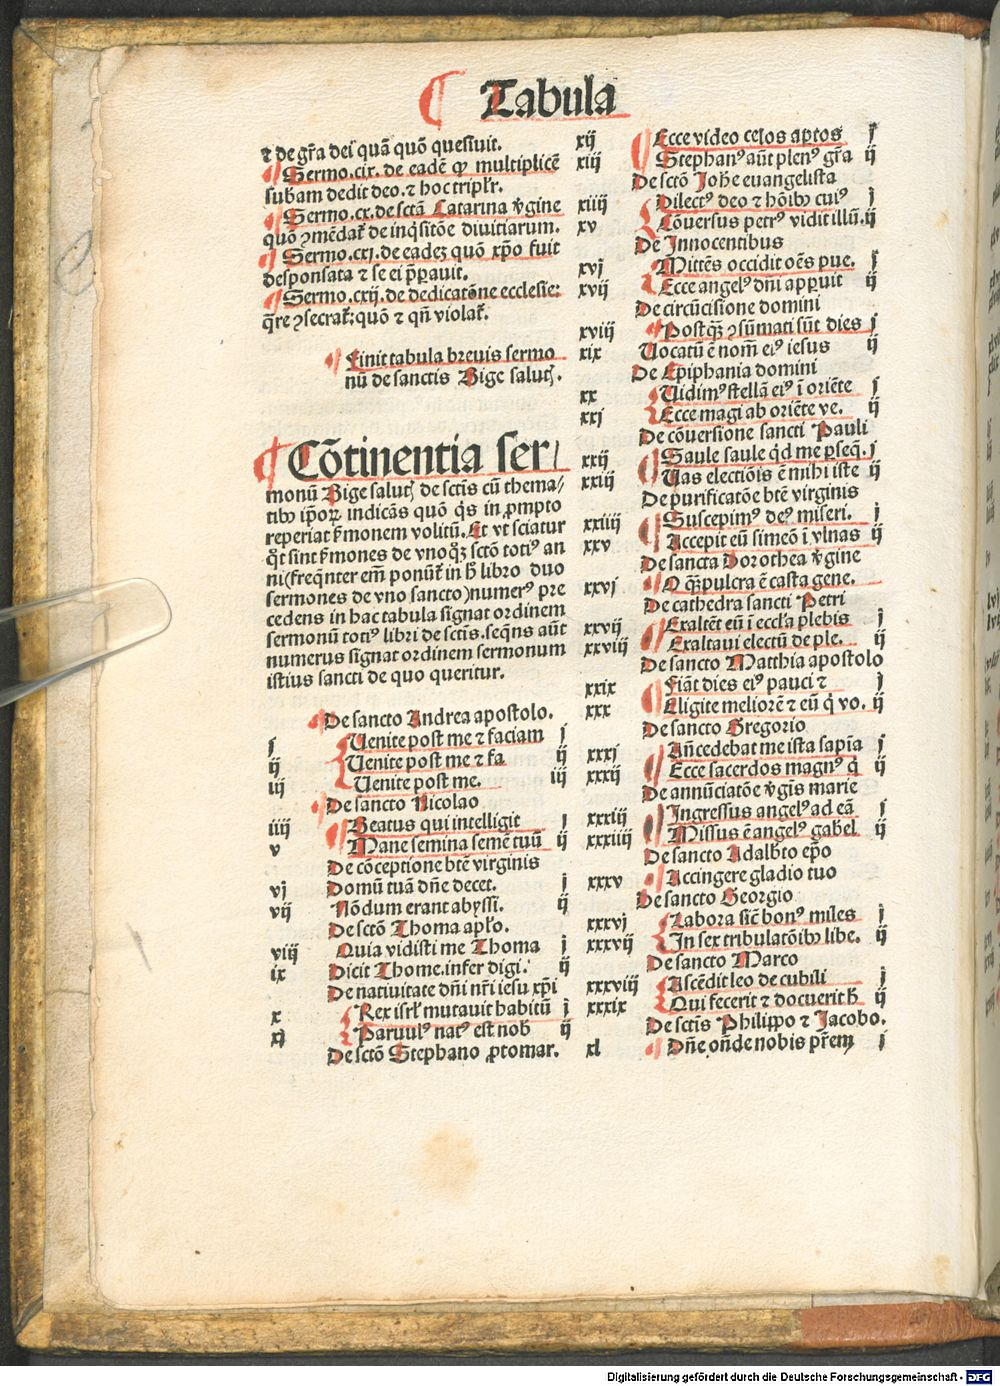 ¶ Tabula
⁊ de gr̃a dei quã quõ quesiuit.
¶ Sermo.cix. de eadẽ ꝙ multiplicẽ
subam dedit deo. ⁊ hoc tripl̃r.
¶ Sermo.cx. de sctã Catarina v̾gine
quõ ꝯmẽdat᷑ de inq̃sitõe diuitiarum.
¶ Sermo.cxi. de eadeꝫ quõ xp̃o fuit
desponsata ⁊ se ei p̃parauit.
¶ Sermo.cxij. de dedicatõne ecclesie:
q̃re ꝯsecrat᷑: quõ ⁊ qñ violat᷑.
¶ Finit tabula breuis sermo
nũ de sanctis Bige saluť.
¶ Cõtinentia ser/
monũ Bige saluť de sctĩs cũ thema/
tibꝰ ip̃oꝝ indicãs quõ q̃s in ꝓmpto
reperiat s̾monem volitũ. Et vt sciatur
q̃t sint s̾mones de vnoq̃ꝫ sctõ totiꝰ an
ni (freq̃nter em̃ ponũt᷑ in h̾ libro duo
sermones de vno sancto) numerꝰ pre
cedens in hac tabula signat ordinem
sermonũ totiꝰ libri de sctĩs. seq̃ns aũt
numerus signat ordinem sermonum
istius sancti de quo queritur.
¶ De sancto Andrea apostolo.
j Uenite post me ⁊ faciam j
ij Uenite post me ⁊ fa ij
iij Uenite post me. iij
¶ De sancto Nicolao
iiij Beatus qui intelligit j
v Mane semina semẽ tuũ ij
De cõceptione btẽ virginis
vj Domũ tuã dñe decet. j
vij Nõdum erant abyssi. ij
De sctõ Thoma apl̃o.
viij Quia vidisti me Thoma j
ix Dicit Thome. infer digi. ij
De natiuitate dñi nr̃i iesu xp̃i
x Rex isrl̃ mutauit habitũ j
xj Paruulꝰ natꝰ est nob̾ ij
De sctõ Stephano ꝓtomar.
xij Ecce video celos aptos j
xiij Stephanꝰ aũt plenꝰ gr̃a ij
De sctõ Joh̃e euangelista
xiiij Dilectꝰ deo ⁊ hõibꝰ cuiꝰ j
xv Cõuersus petrꝰ vidit illũ. ij
De Innocentibus
xvj Mittẽs occidit oẽs pue. j
xvij Ecce angelꝰ dñi apparuit ij
De circũcisione domini
xviij Postq̃ꝫ ꝯsũmati sũt dies j
xix Uocatũ ẽ nom̃ eiꝰ iesus ij
De Epiphania domini
xx Uidimꝰ stellã eiꝰ ĩ oriẽte j
xxj Ecce magi ab oriẽte ve. ij
De cõuersione sancti Pauli
xxij Saule saule q̃d me ꝑseq̃. j
xxiij Uas electiõis ẽ mihi iste ij
De purificatõe btẽ virginis
xxiiij Suscepimꝰ deꝰ miseri. j
xxv Accepit eũ simeõ ĩ vlnas ij
De sancta Dorothea v̾gine
xxvj O q̃ꝫ pulcra ẽ casta gene.
De cathedra sancti Petri
xxvij Exaltẽt eũ ĩ eccl̃a plebis j
xxviij Exaltaui electũ de ple. ij
De sancto Matthia apostolo
xxix Fiãt dies eiꝰ pauci ⁊ j
xxx Eligite meliorẽ ⁊ eũ q̃ vo. ij
De sancto Gregorio
xxxj Añcedebat me ista sap̃ia j
xxxij Ecce sacerdos magnꝰ q̃ ij
De annũciatõe v̾gis marie
xxxiij Ingressus angelꝰ ad eã j
xxxiiij Missus ẽ angelꝰ gabel̾ ij
De sancto Adalb̾to ep̃o
xxxv Accingere gladio tuo
De sancto Georgio
xxxvj Labora sic̃ bonꝰ miles j
xxxvij In sex tribulatõibꝰ libe. ij
De sancto Marco
xxxviij Ascẽdit leo de cubili j
xxxix Qui fecerit ⁊ docuerit h̾ ij
De sctĩs Philippo ⁊ Jacobo.
xl Dñe oñde nobis pr̃em j
Digitalisierung gefördert durch die Deutsche Forschungsgemeinschaft - DFG